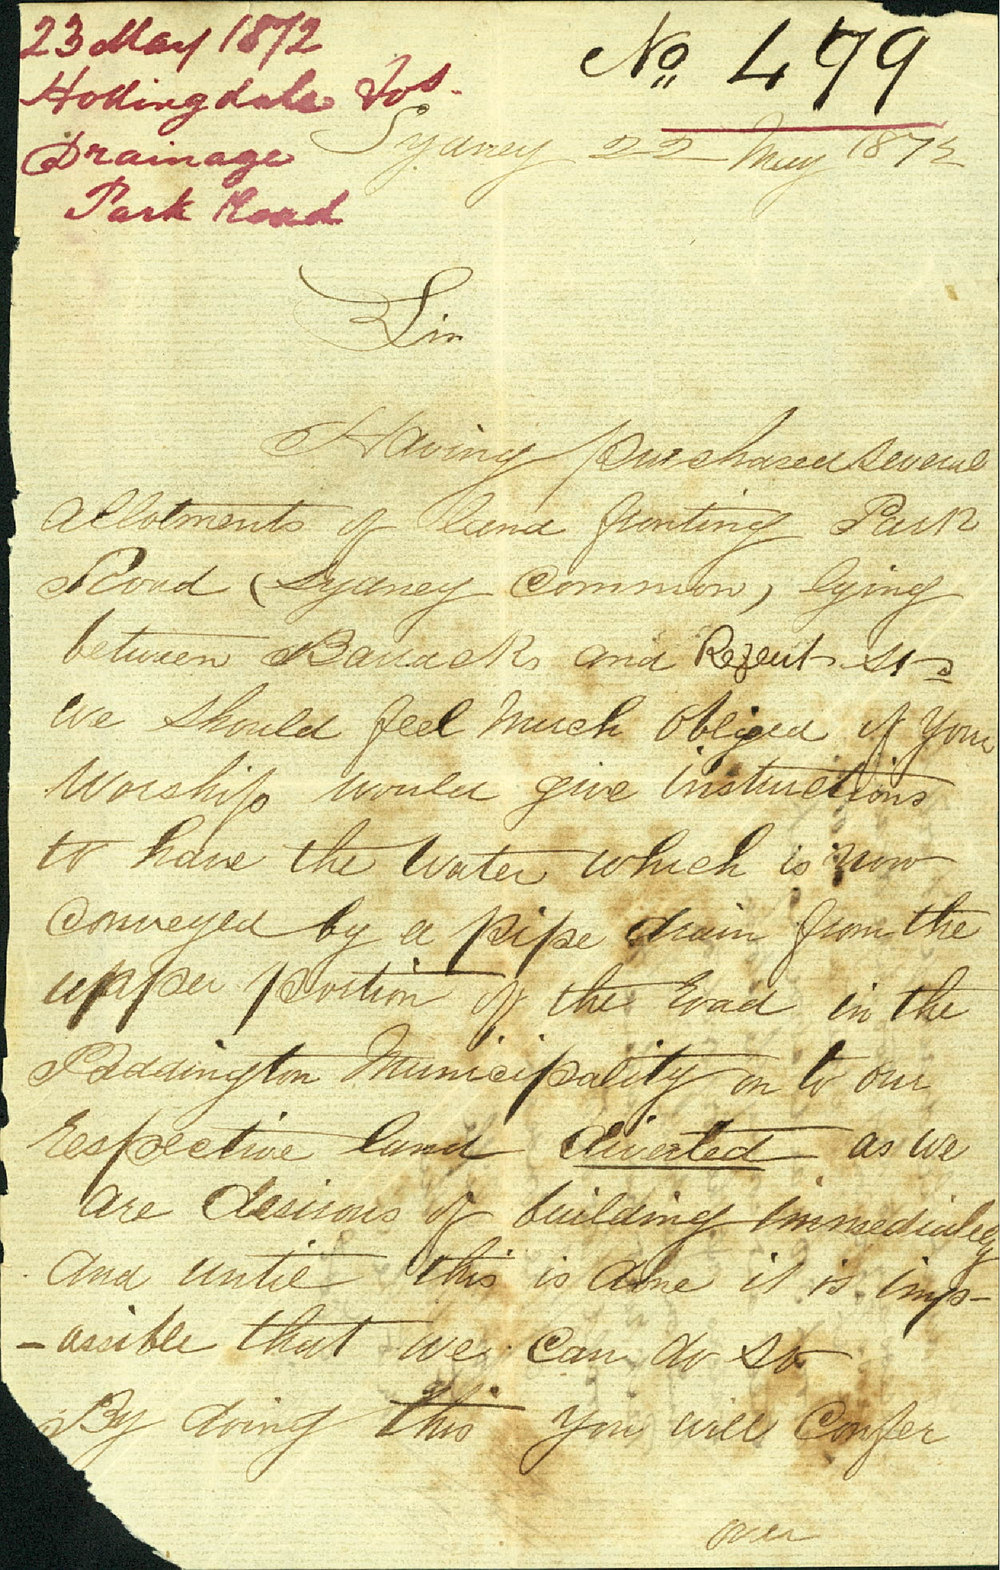 23 May 1872
Hollingdale Jos.
Drainage
Park Road
No 479
Sydney 22 May 1872
Sir
Having purchased several
allotments of land fronting Park
Road (Sydney Common) lying
between Barracks and Regent Sts
we should feel much obliged if your
Worship would give instructions
to have the water which is now
conveyed by a pipe drain from the
upper portion of the road in the
Paddington Municipality on to our
respective land diverted as we
are desirous of building immediately
and until this is done it is imp-
-ossible that we can do so
By doing this you will confer
over